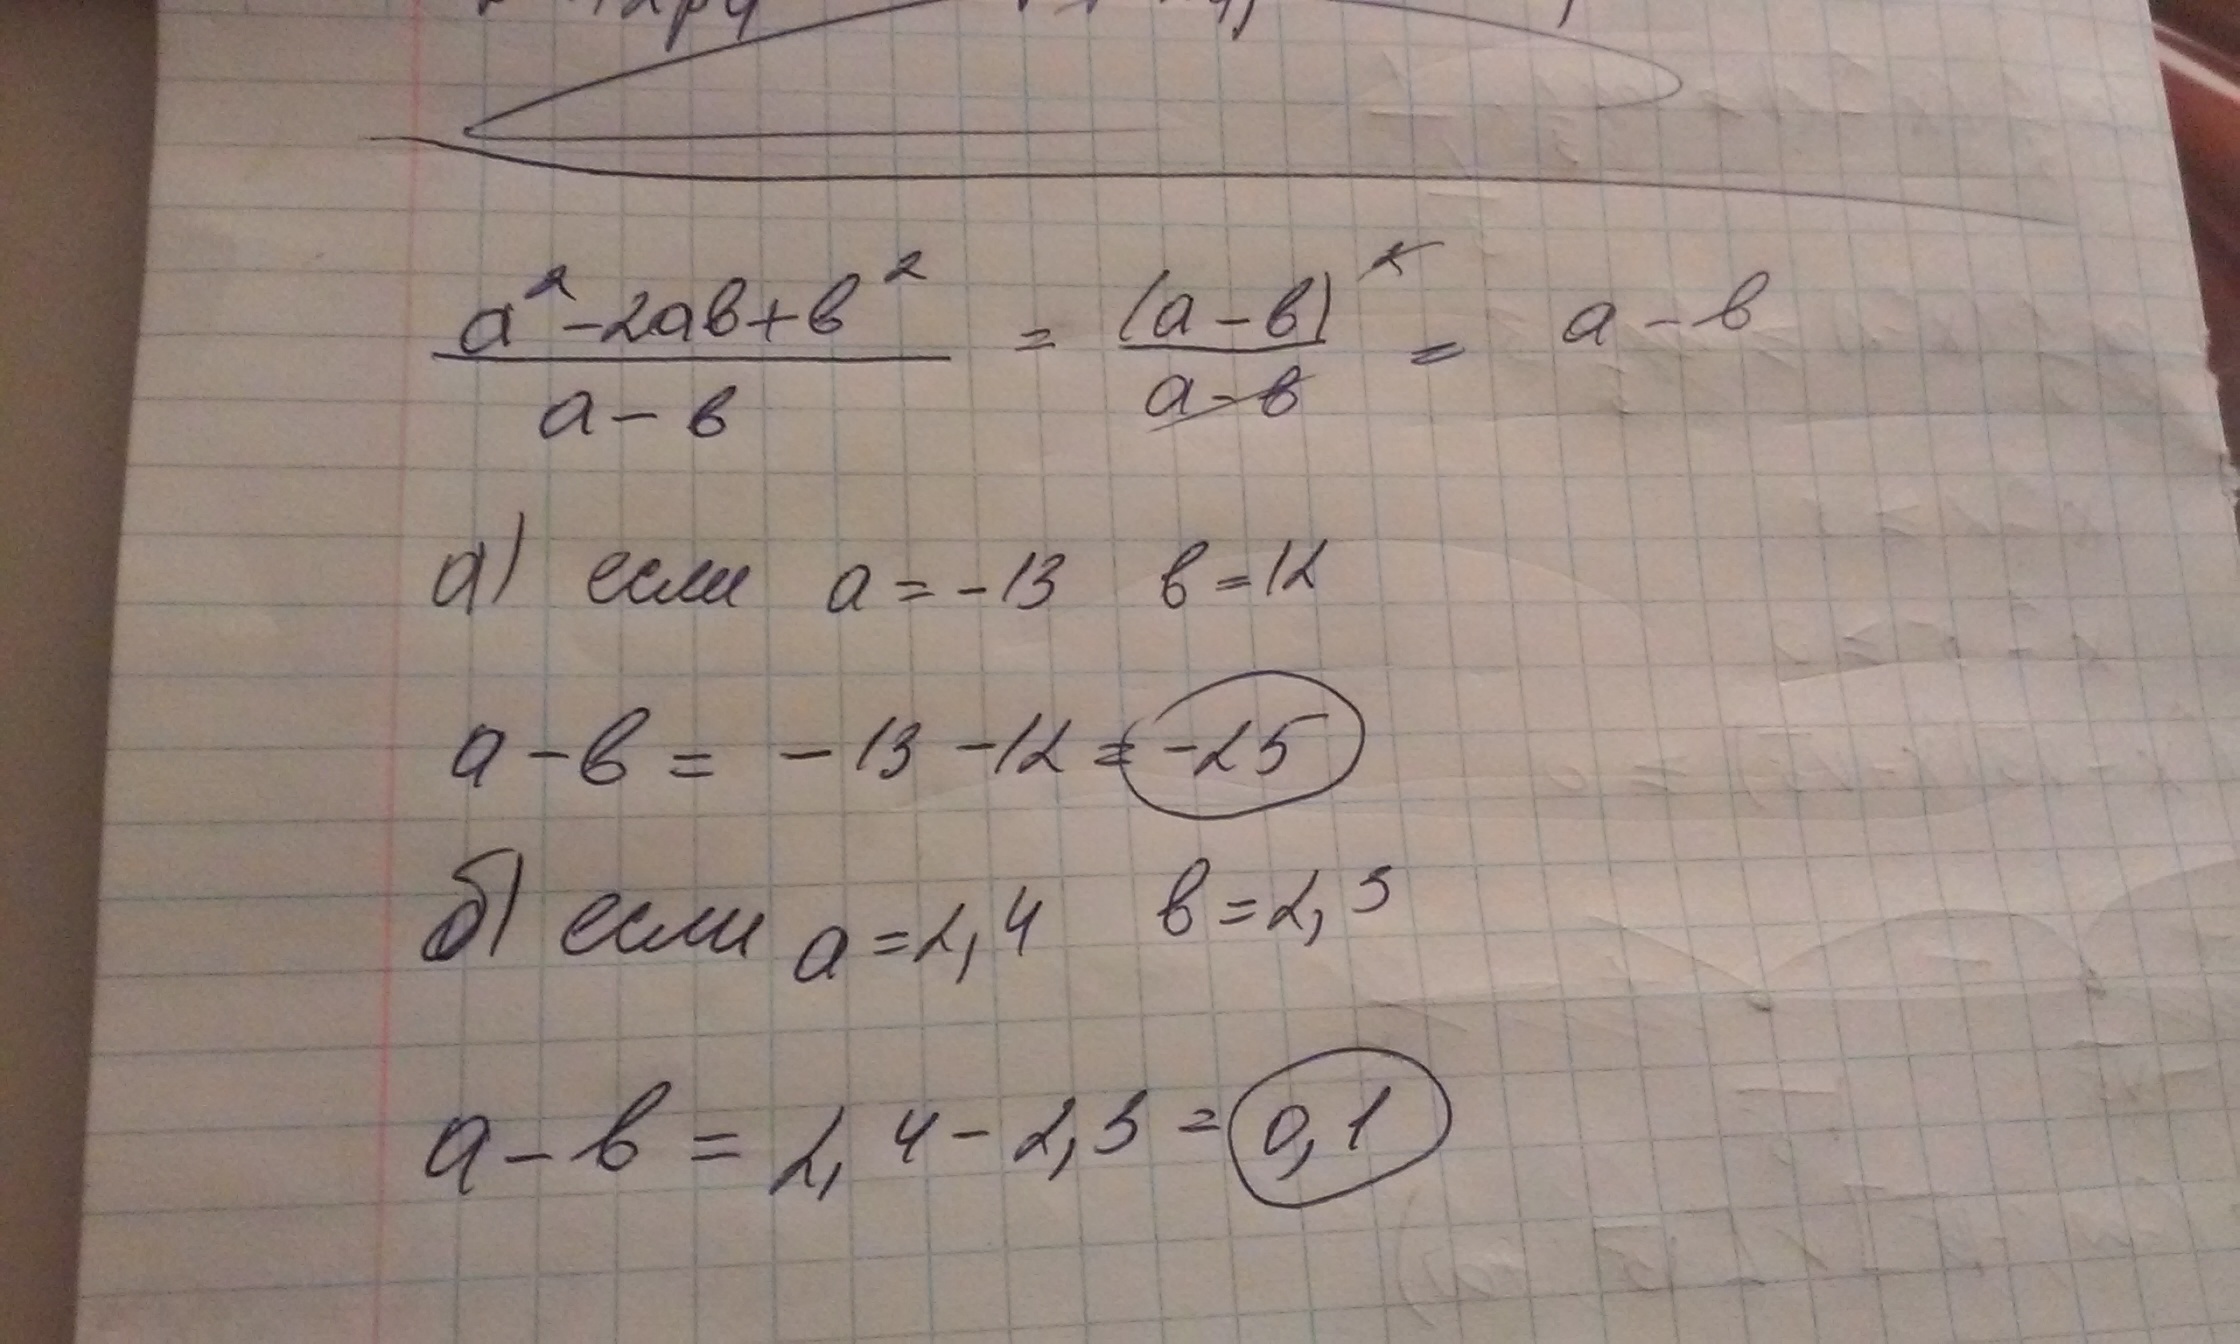 a² - 2ab + b² / a - b = (a - b)² / a - b = a - b
а) если a = -13 b = 12
a - b = -13 - 12 = -25
б) если a = 2,4 b = 2,3
a - b = 2,4 - 2,3 = 0,1